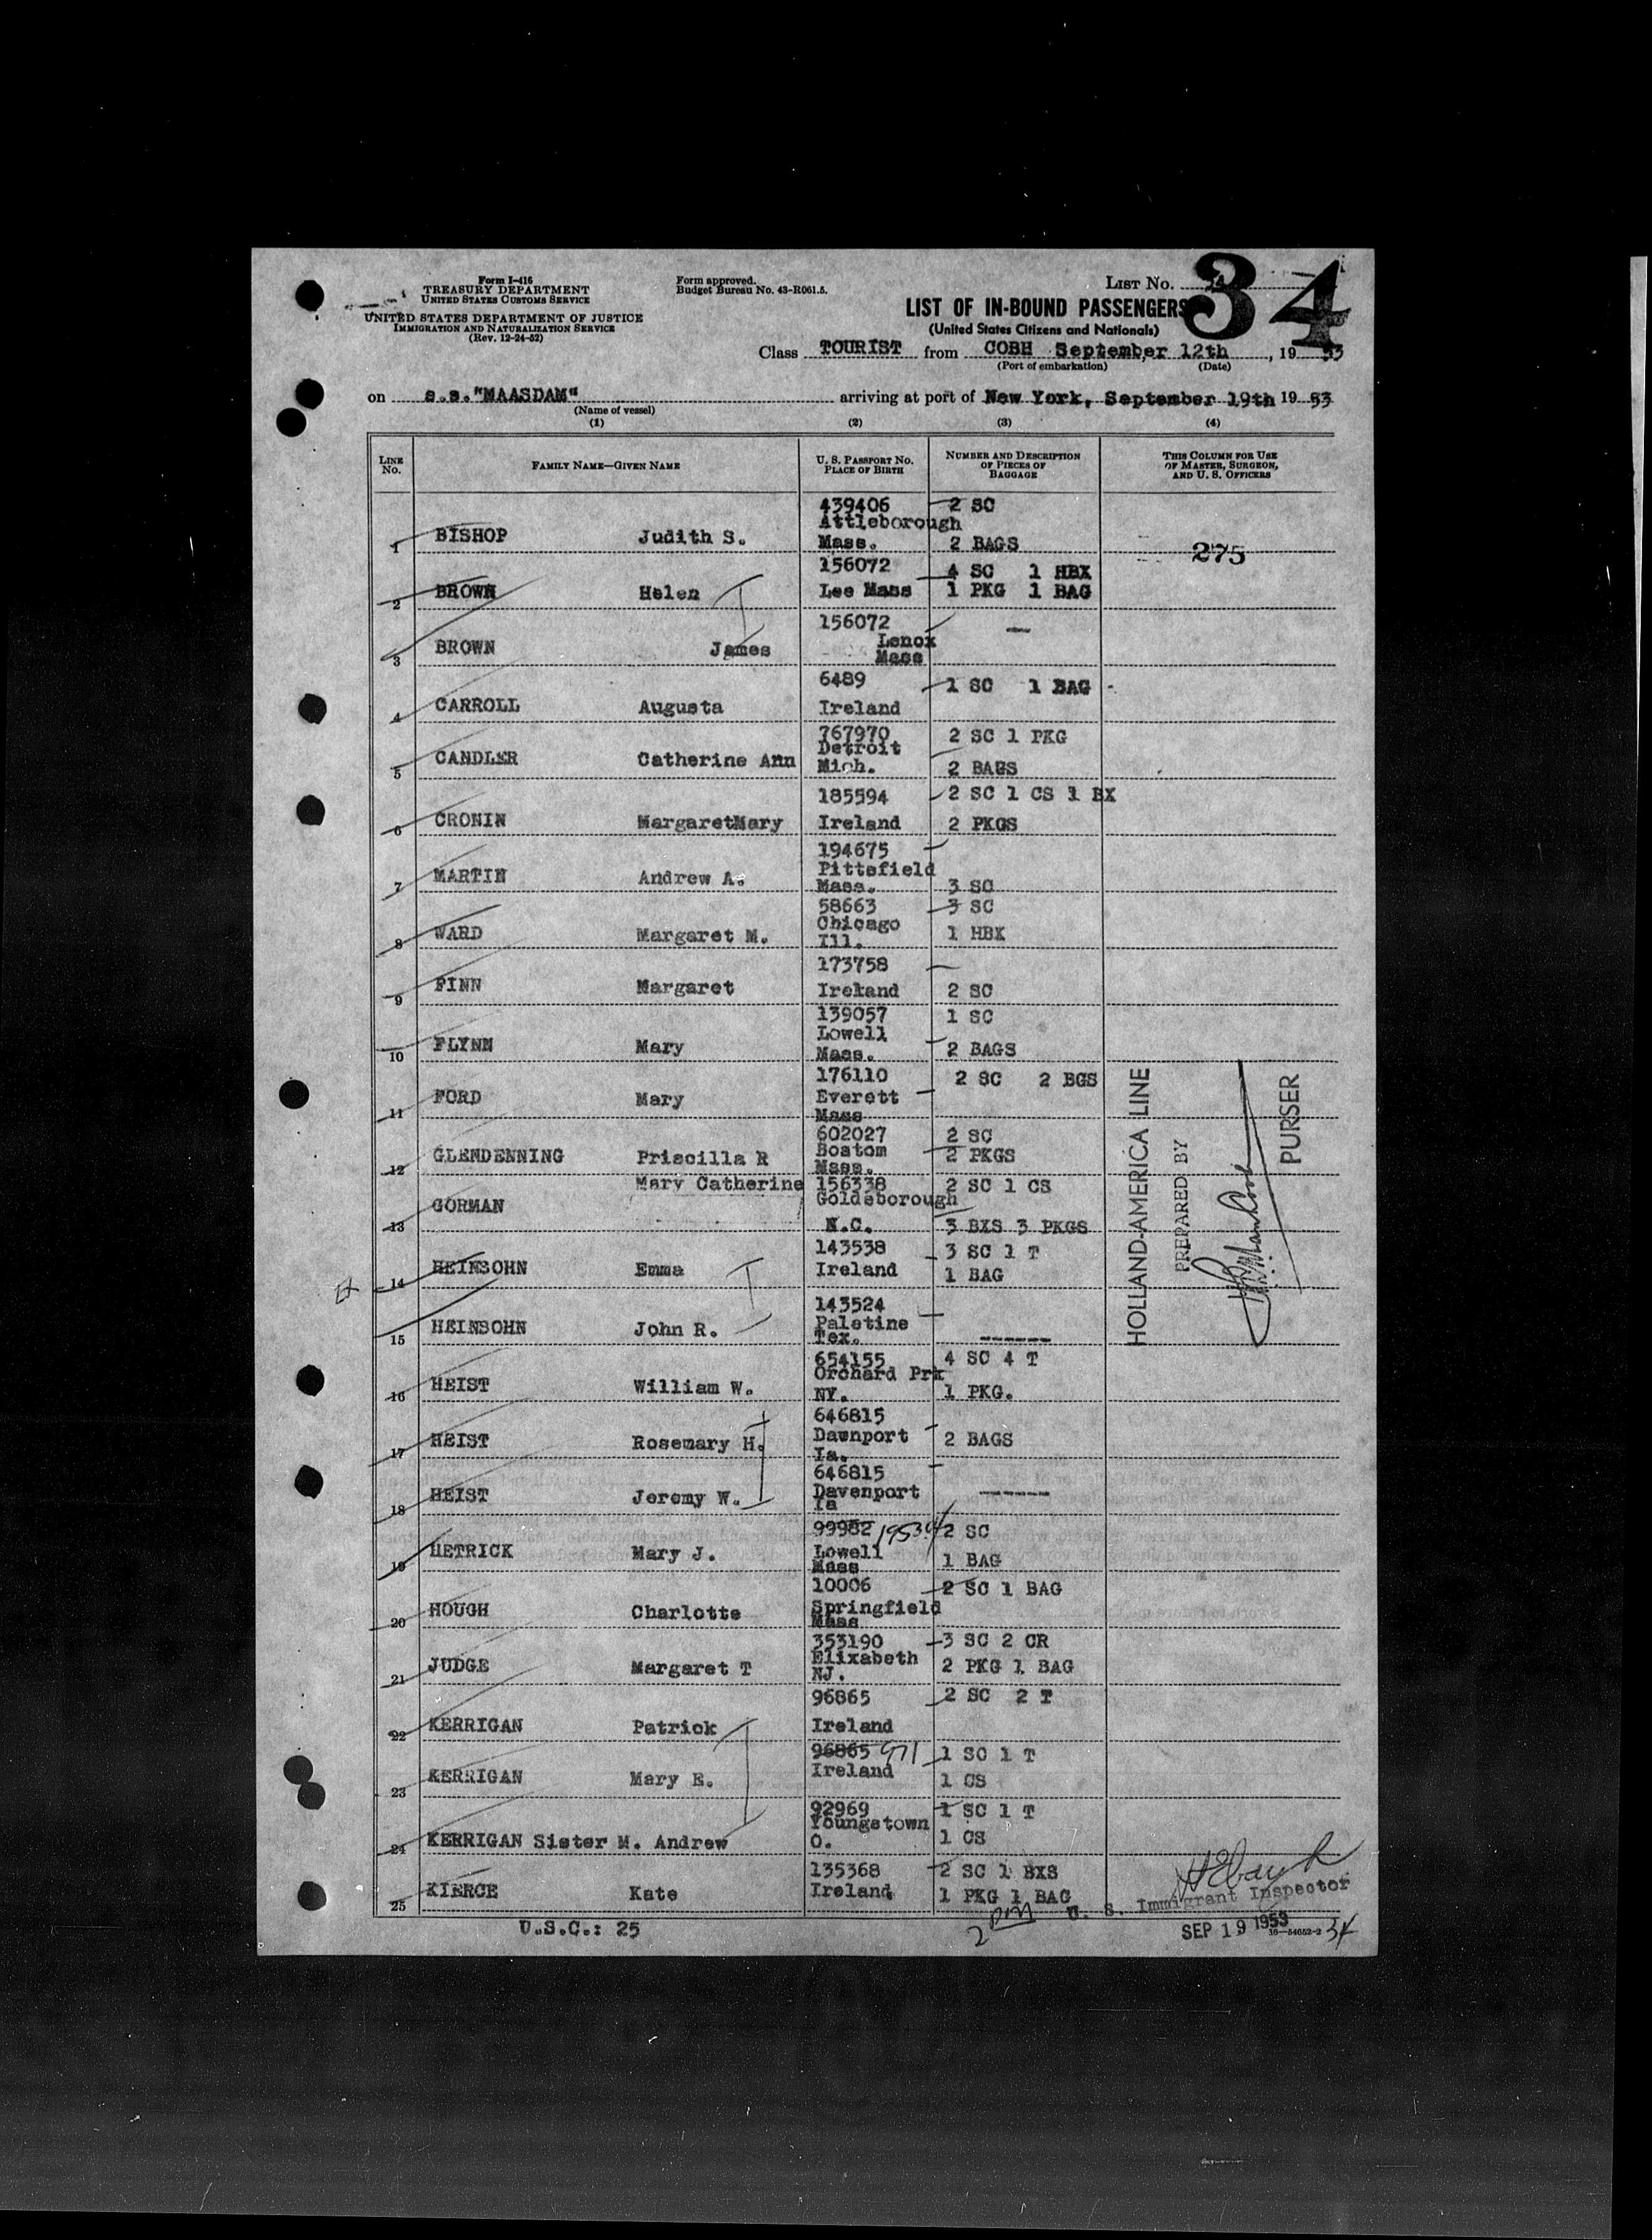 Form I-416
TREASURY DEPARTMENT
UNITED STATES CUSTOMS SERVICE
UNITED STATES DEPARTMENT OF JUSTICE
IMMIGRATION AND NATURALIZATION SERVICE
(Rev. 12-24-52)
Form approved.
Budget Bureau No. 43-R061.5.
LIST No. 34
LIST OF IN-BOUND PASSENGERS
(United States Citizens and Nationals)
Class TOURIST from COBH September 12th, 19 53
(Port of embarkation) (Date)
on s.s."MAASDAM" arriving at port of New York, September 19th 19 53
(Name of vessel)
(1) (2) (3) (4)
LINE No. FAMILY NAME—GIVEN NAME U. S. PASSPORT NO. PLACE OF BIRTH NUMBER AND DESCRIPTION OF PIECES OF BAGGAGE THIS COLUMN FOR USE OF MASTER, SURGEON, AND U. S. OFFICERS
439406 2 SC
Attleborough
1 BISHOP Judith S. Mass. 2 BAGS 275
156072 4 SC 1 HBX
2 BROWN Helen Lee Mass 1 PKG 1 BAG
156072 —
Lenox
3 BROWN James Mass
6489 1 SC 1 BAG
4 CARROLL Augusta Ireland
767970 2 SC 1 PKG
Detroit
5 CANDLER Catherine Ann Mich. 2 BAGS
185594 2 SC 1 CS 1 BX
6 CRONIN MargaretMary Ireland 2 PKGS
194675
Pittsfield
7 MARTIN Andrew A. Mass. 3 SC
58663 3 SC
Chicago
8 WARD Margaret M. Ill. 1 HBX
173758
9 FINN Margaret Ireland 2 SC
139057 1 SC
Lowell
10 FLYNN Mary Mass. 2 BAGS
176110 2 SC 2 BGS
Everett
11 FORD Mary Mass
602027 2 SC
Boston 2 PKGS
12 GLENDENNING Priscilla R Mass.
Mary Catherine 156338 2 SC 1 CS
Goldsborough
13 GORMAN N.C. 3 BXS 3 PKGS
143538 3 SC 1 T
14 HEINSOHN Emma Ireland 1 BAG
143524
Paletine
15 HEINSOHN John R. Tex. ------
654155 4 SC 4 T
Orchard Prk
16 HEIST William W. NY. 1 PKG.
646815
Dawnport
17 HEIST Rosemary H. Ia. 2 BAGS
646815
Davenport
18 HEIST Jeremy W. Ia -----
99982 2 SC
Lowell
19 HETRICK Mary J. Mass 1 BAG
10006 2 SC 1 BAG
Springfield
20 HOUGH Charlotte Mass
353190 3 SC 2 CR
Elixabeth
21 JUDGE Margaret T NJ. 2 PKG 1 BAG
96865 2 SC 2 T
22 KERRIGAN Patrick Ireland
96865 971 1 SC 1 T
Ireland
23 KERRIGAN Mary E. 1 CS
92969 1 SC 1 T
Youngstown
24 KERRIGAN Sister M. Andrew O. 1 CS
135368 2 SC 1 BXS
25 KIERCE Kate Ireland 1 PKG 1 BAG
HOLLAND-AMERICA LINE
PREPARED BY
PURSER
U. S. Immigrant Inspector
U.S.C.: 25
2 pm
SEP 19 1953
16—54652-2
34